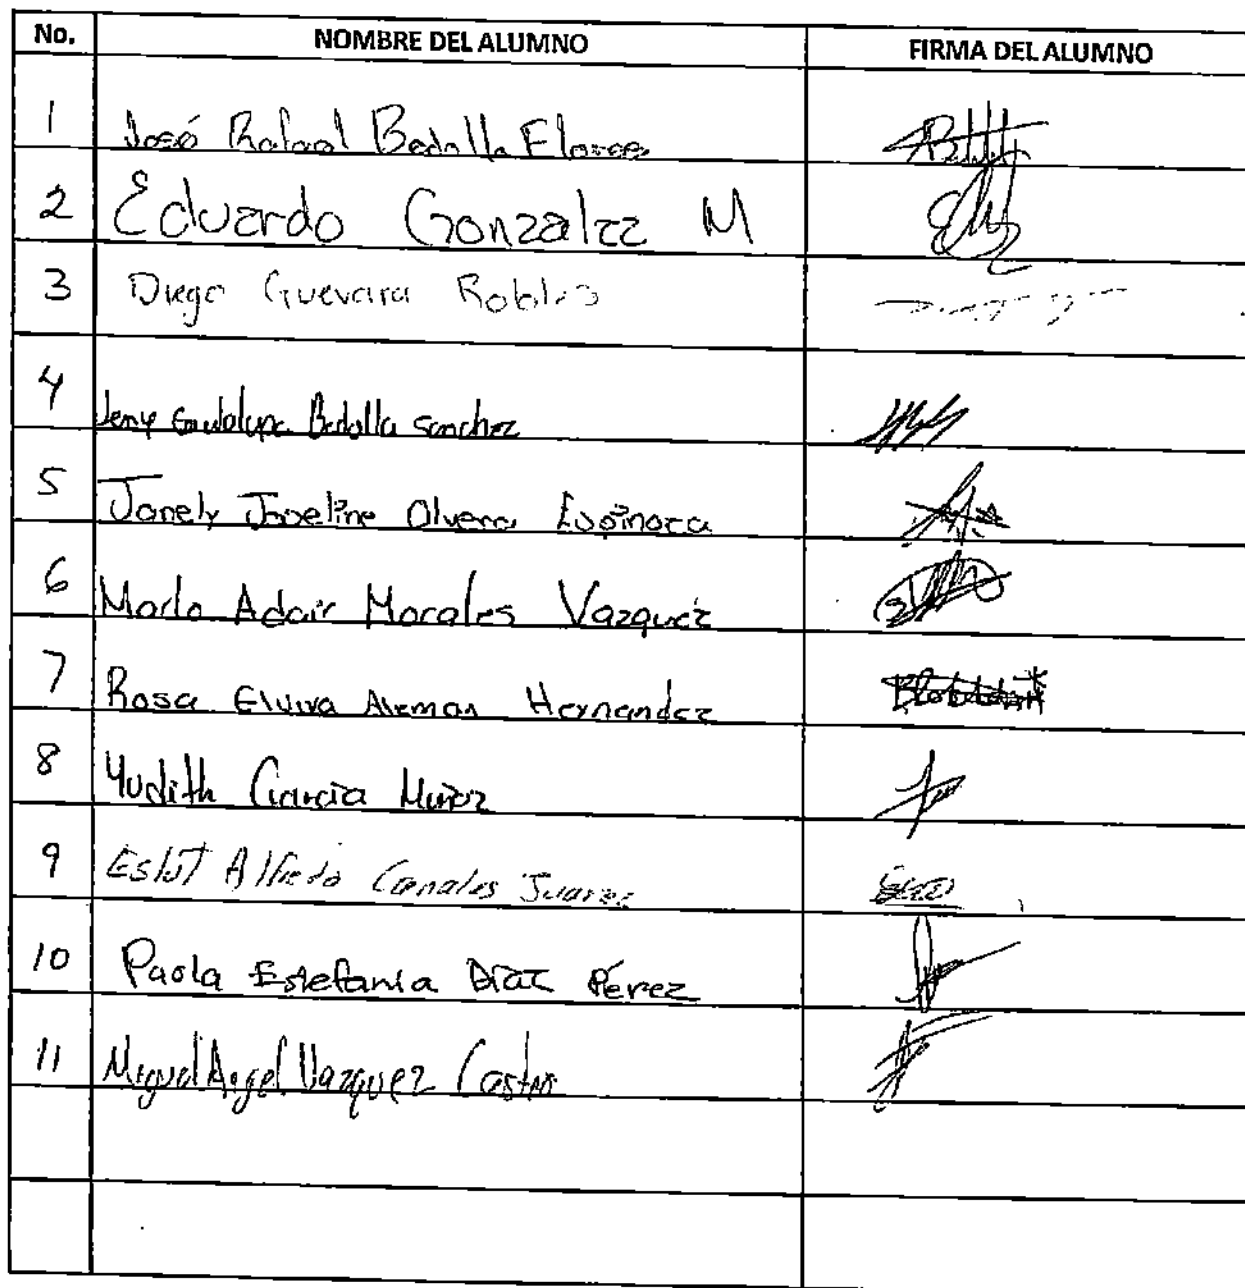 No. NOMBRE DEL ALUMNO FIRMA DEL ALUMNO
1 José Rafael Bedolla Flores
2 Eduardo Gonzalez M
3 Diego Guevara Robles
4 Jeny Guadalupe Bedolla Sanchez
5 Janely Joseline Olvera Espinoza
6 Adair Morales Vazquez
7 Rosa Elvira Aleman Hernandez
8 Yudith García Muñoz
9 Alfredo Canales Juarez
10 Paola Estefania Díaz Pérez
11 Miguel Angel Vazquez Castro